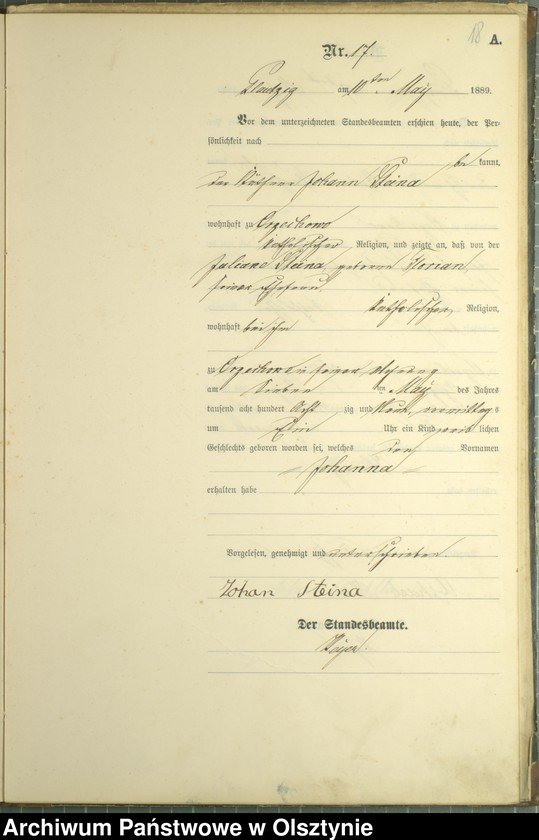 18 A.
Nr. 17.
am 10ten May 1889.
Vor dem unterzeichneten Standesbeamten erschien heute, der Per-
sönlichkeit nach
be kannt,
der Johann Steina
wohnhaft zu Orzechowo
katholischer Religion, und zeigte an, daß von der
Juliane Steina, geborene Florian,
seiner Ehefrau
katholischer Religion,
wohnhaft bei ihm
zu Orzechowo in seiner Wohnung
am Sieben ten May des Jahres
tausend acht hundert Acht zig und Neun, vormittags
um Uhr ein Kind weib lichen
Geschlechts geboren worden sei, welches den Vornamen
Johanna
erhalten habe
Vorgelesen, genehmigt und unterschrieben.
Johan Steina
Der Standesbeamte.
Archiwum Państwowe w Olsztynie